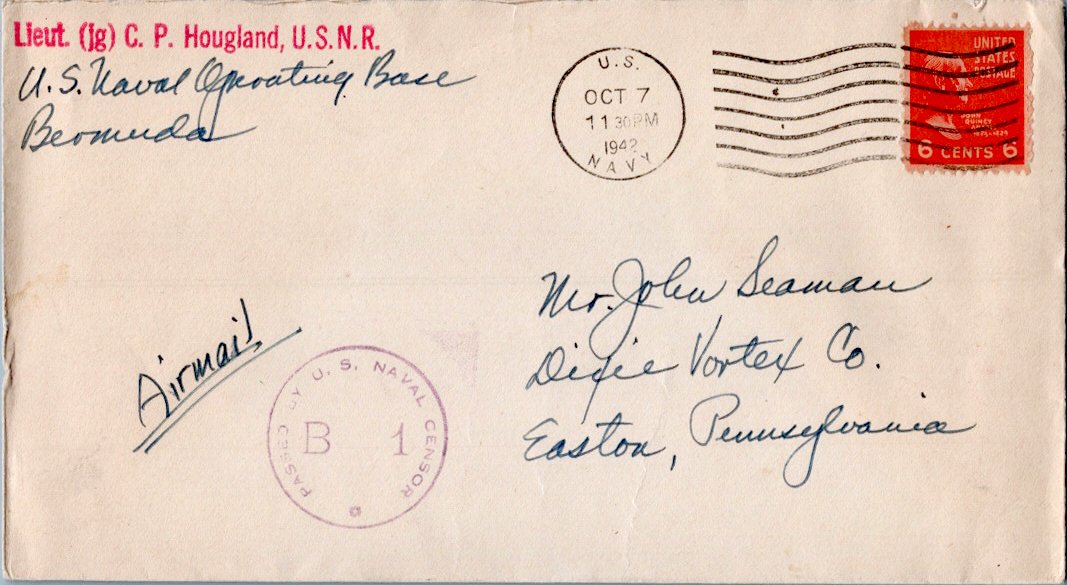 Lieut. (jg) C. P. Hougland, U.S.N.R.
U.S. Naval Operating Base
Bermuda
U.S.
OCT 7
11 30 PM
1942
NAVY
UNITED
STATES
POSTAGE
JOHN
QUINCY
6 CENTS 6
Mr. John Seaman
Dixie Vortex Co.
Easton, Pennsylvania
Airmail
PASSED BY U. S. NAVAL CENSOR
B 1